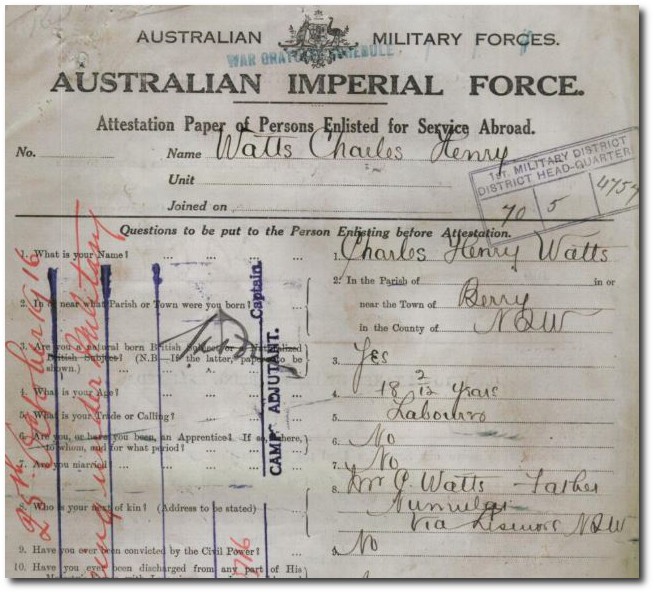 AUSTRALIAN MILITARY FORCES.
WAR GRATUITY SCHEDULE
AUSTRALIAN IMPERIAL FORCE.
Attestation Paper of Persons Enlisted for Service Abroad.
No. Name Watts Charles Henry
Unit
Joined on
1ST. MILITARY DISTRICT
DISTRICT HEAD-QUARTERS
70 5 4757
Questions to be put to the Person Enlisting before Attestation.
1. What is your Name? ... ... ... ... 1. Charles Henry Watts
2. In or near what Parish or Town were you born? 2. In the Parish of in or
near the Town of Berry
in the County of NSW
3. Are you a natural born British Subject or a Naturalized
British Subject? (N.B.—If the latter, papers to be
shown.) 3. Yes
4. What is your Age? 4. 18 2/12 years
5. What is your Trade or Calling? 5. Labourer
6. Are you, or have you been, an Apprentice? If so, where,
to whom, and for what period? 6. No
7. Are you married? 7. No
8. Who is your next of kin? (Address to be stated) 8. Mr P. Watts - Father
via Lismore NSW
9. Have you ever been convicted by the Civil Power? 9. No
10. Have you ever been discharged from any part of His
CAMP ADJUTANT. Captain
25th